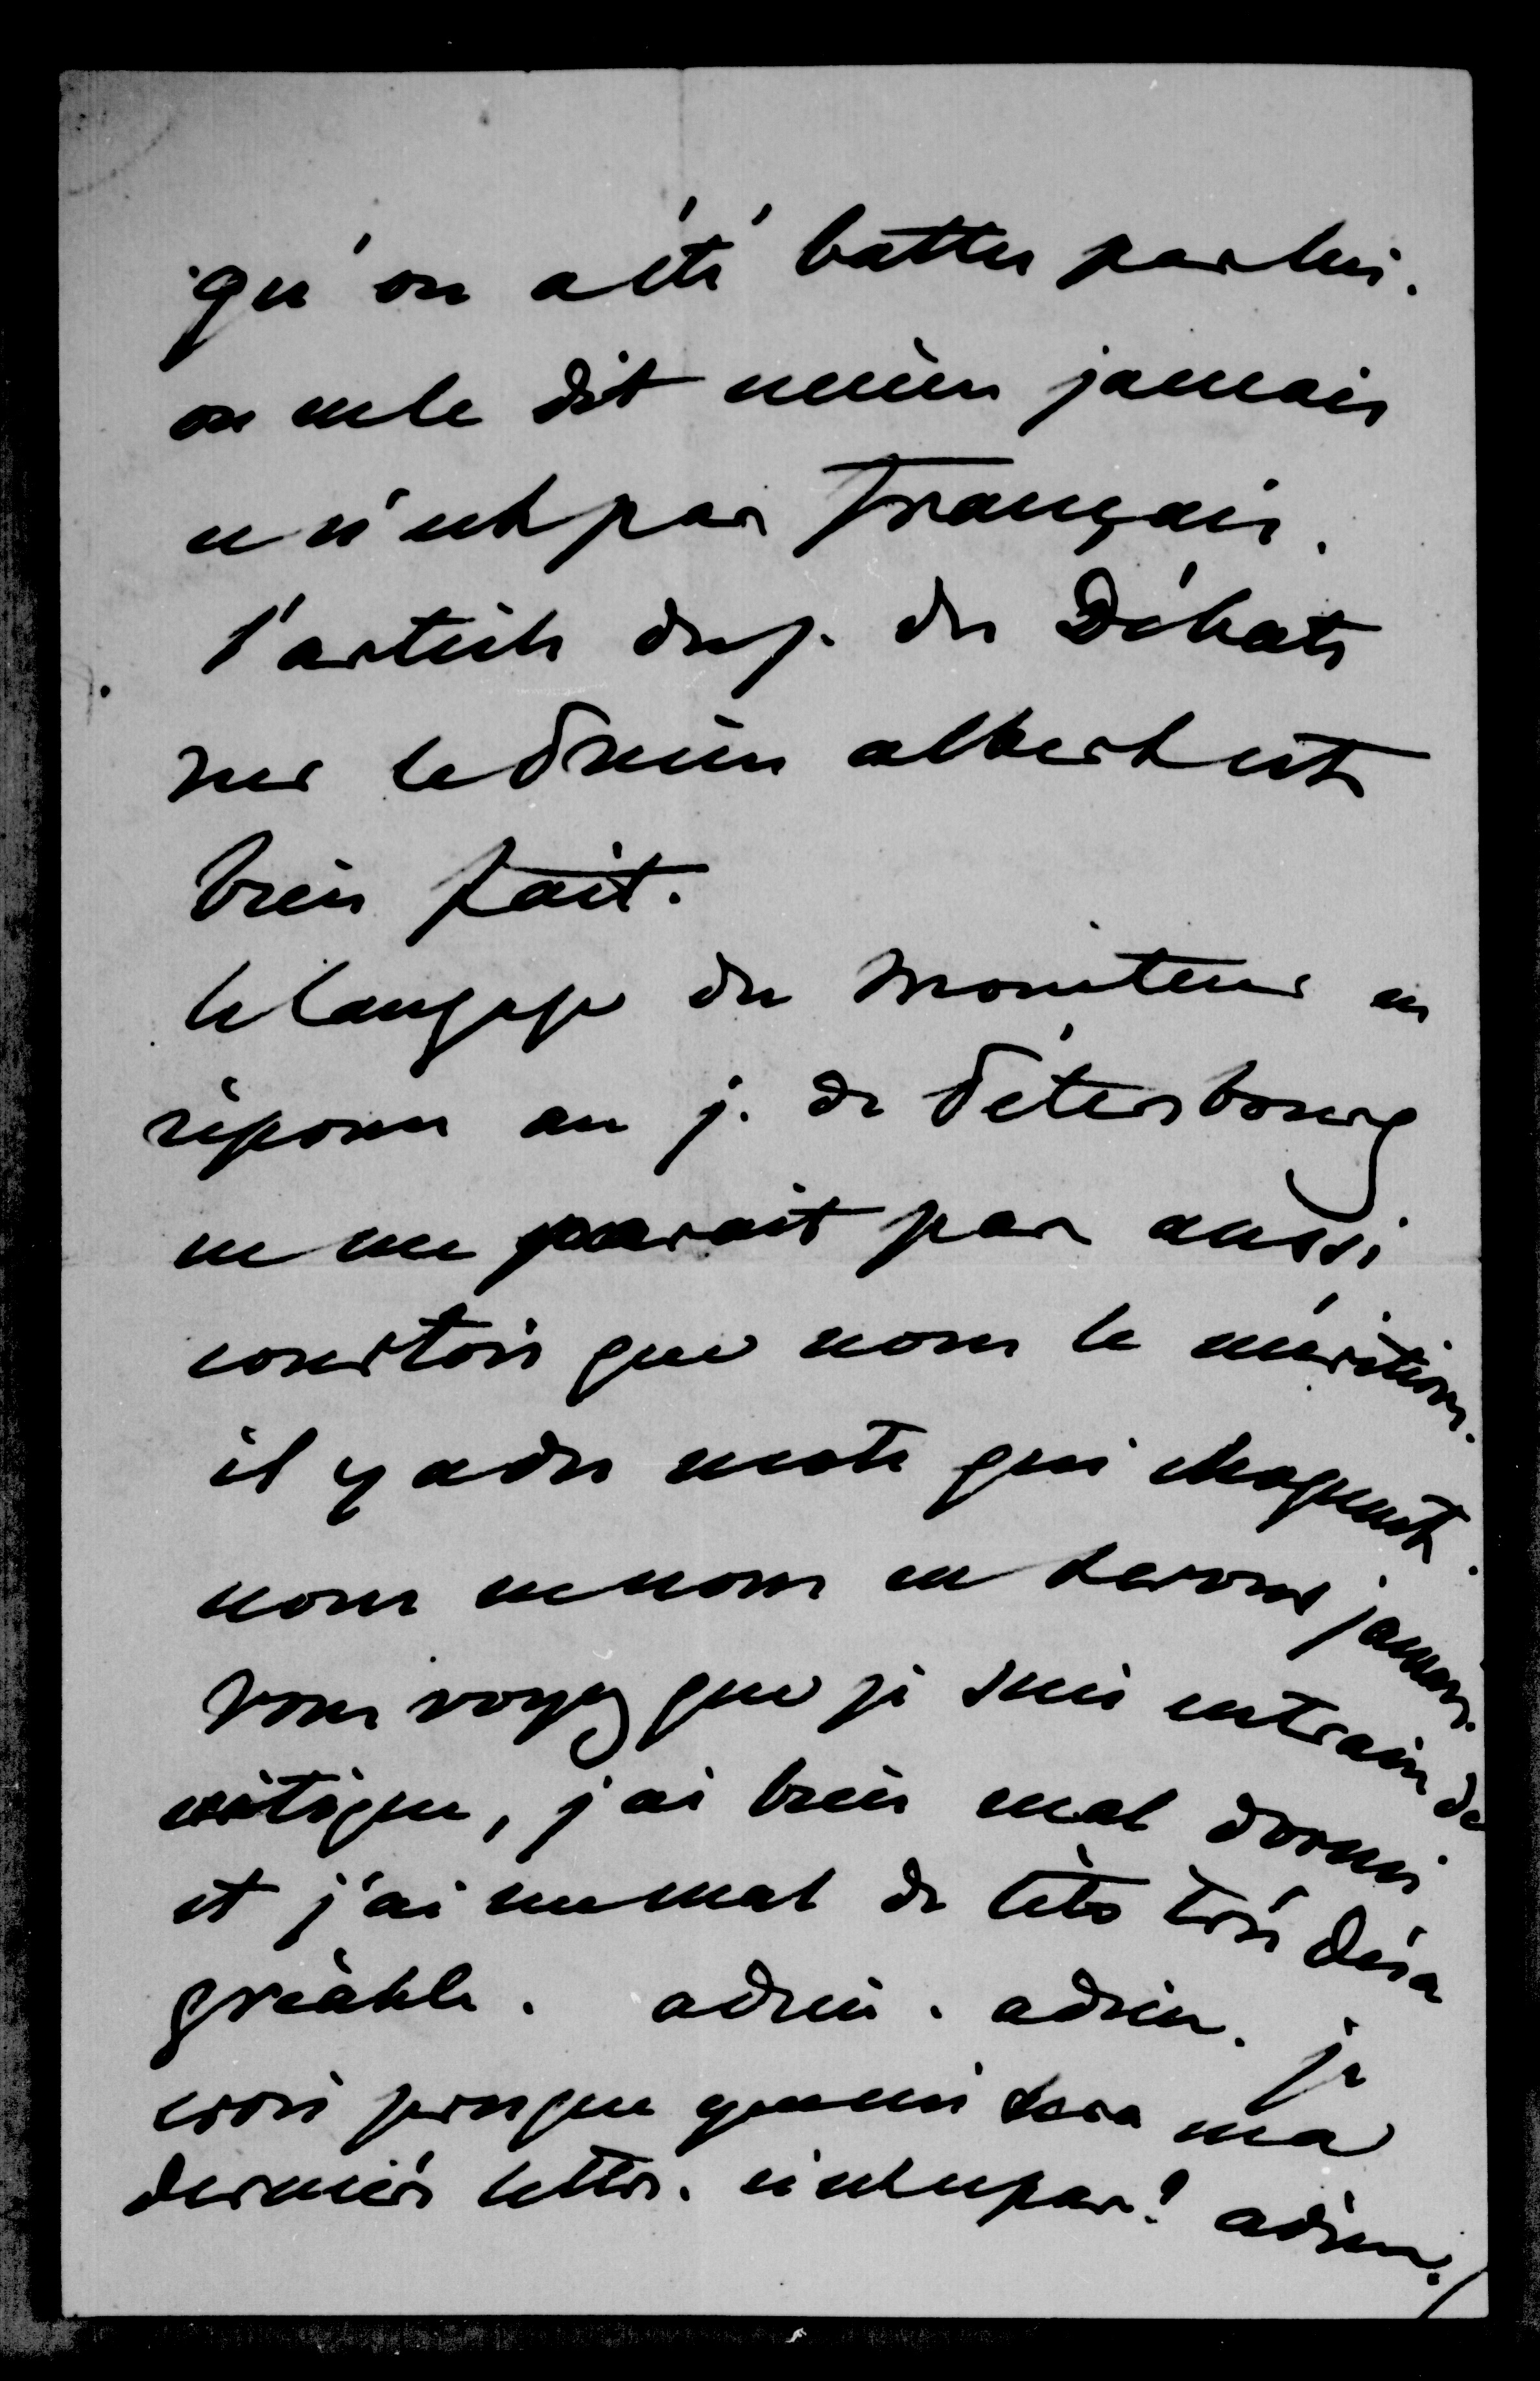 qu'on a été battu par lui.
on ne le dit même jamais
ce n'est pas Français.
l'article du j. des Débats
sur le Prince Albert est
bien fait.
le langage du Moniteur en
réponse au j. de Pétersbourg
ne me parait pas aussi
courtois que nous le méritions.
il y a des mots qui choquent.
nous ne nous en servons jamais.
vous voyez que je suis en train de
critique, j'ai bien mal dormi
et j'ai un mal de tête très désa
gréable. adieu. adieu. je
crois presque que ceci sera ma
dernière lettre. n'est-ce pas? adieu.